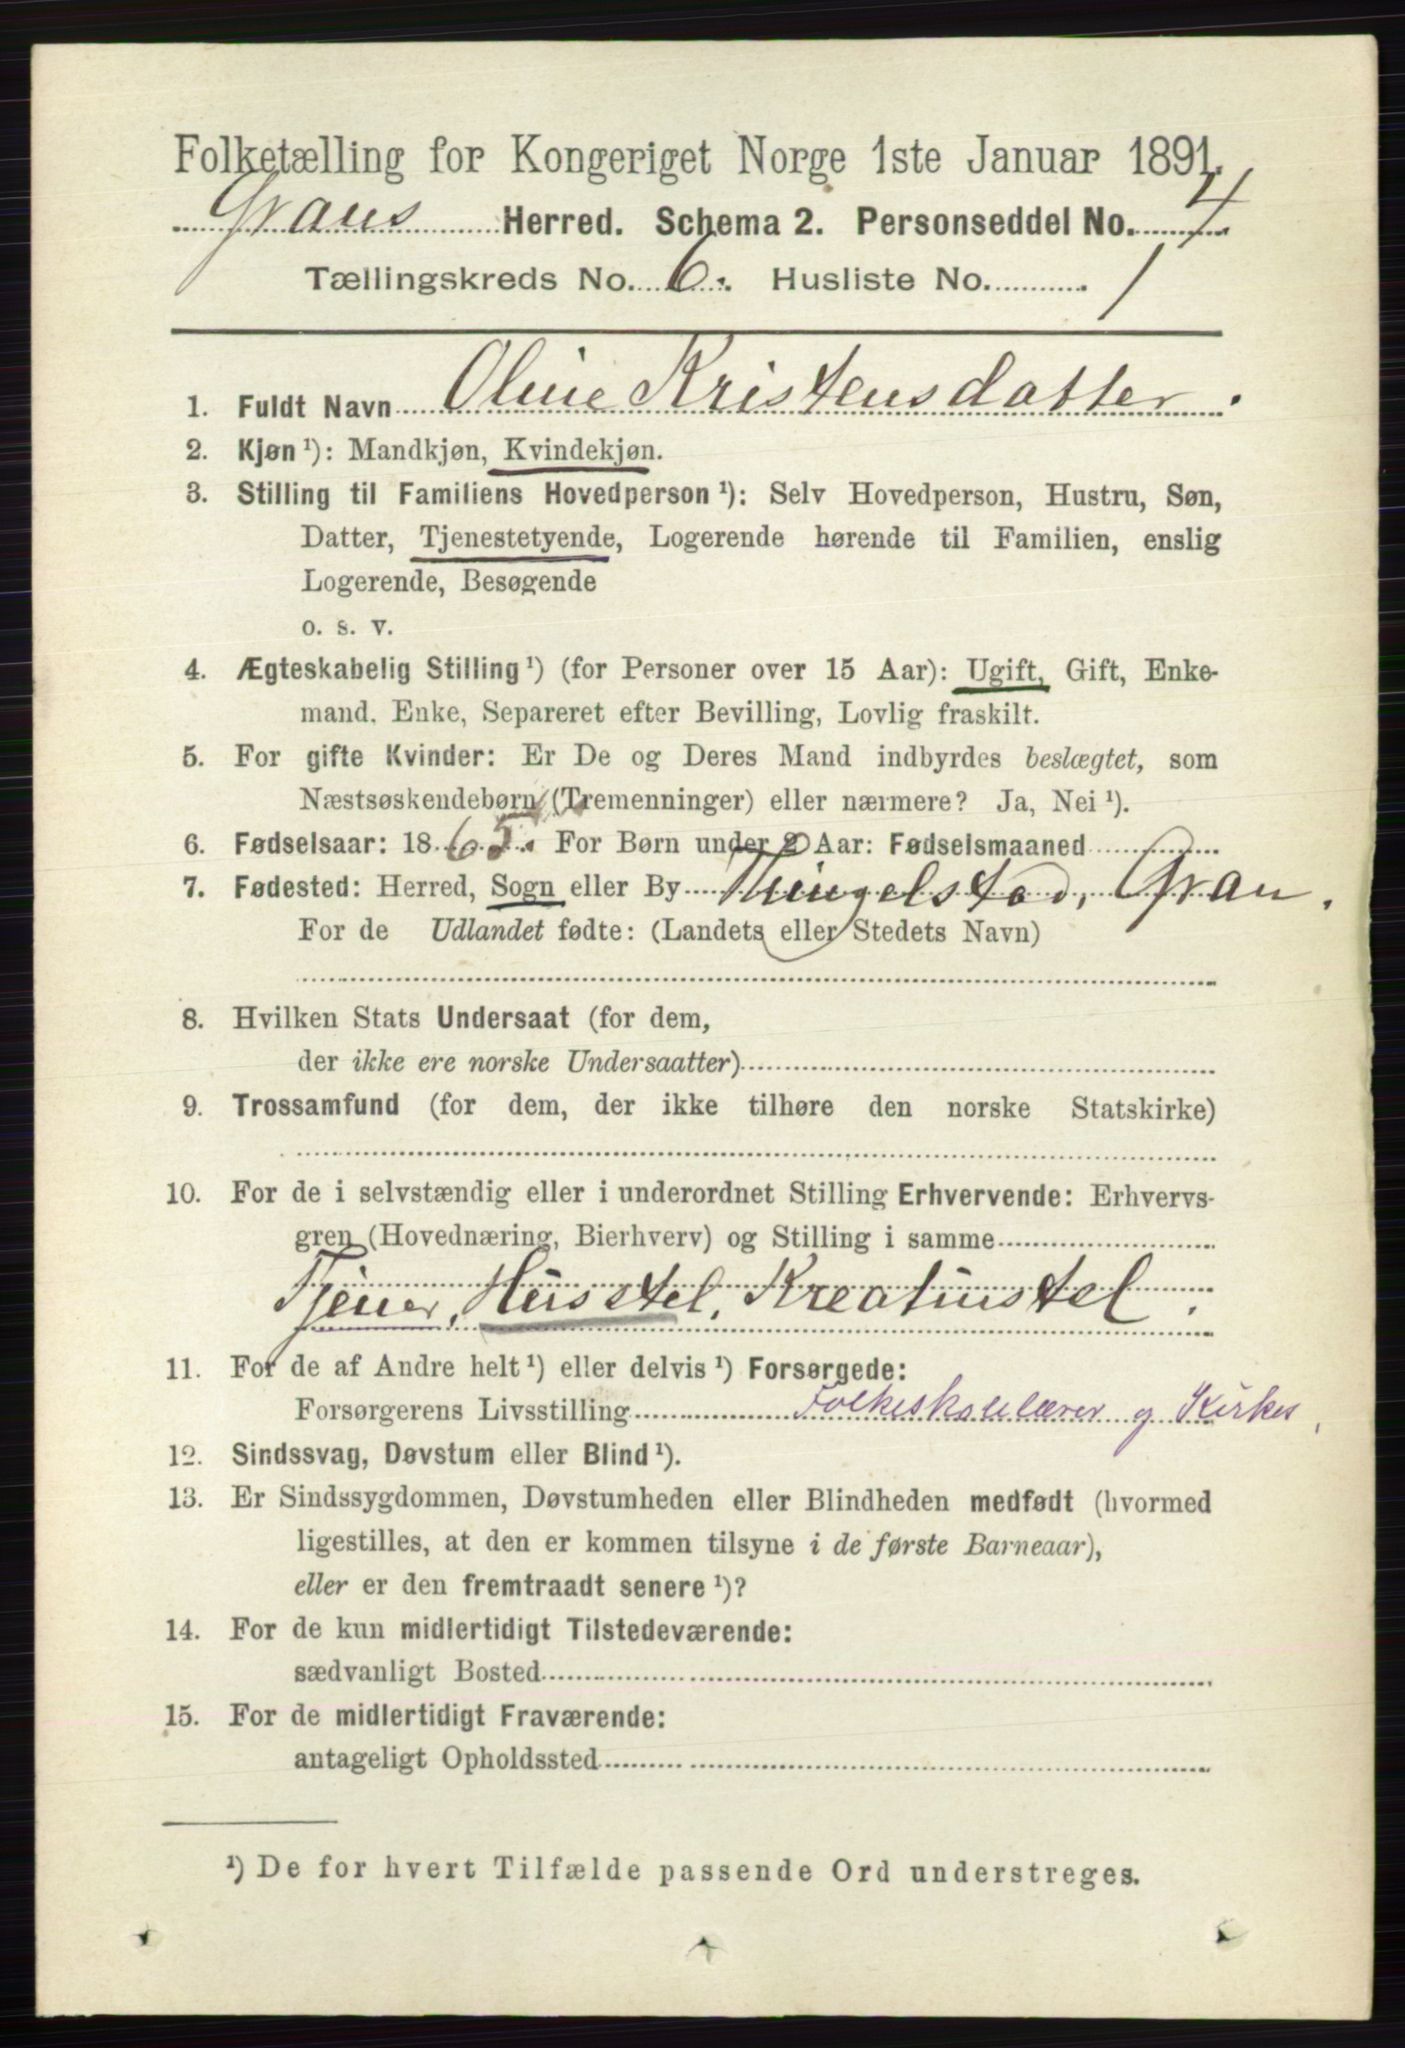 Folketælling for Kongeriget Norge 1ste Januar 1891.
Grans Herred. Schema 2. Personseddel No. 4
Tællingskreds No. 6. Husliste No. 1
1. Fuldt Navn Oline Kristensdatter.
2. Kjøn ¹): Mandkjøn, Kvindekjøn.
3. Stilling til Familiens Hovedperson ¹): Selv Hovedperson, Hustru, Søn,
Datter, Tjenestetyende, Logerende hørende til Familien, enslig
Logerende, Besøgende
o. s. v.
4. Ægteskabelig Stilling ¹) (for Personer over 15 Aar): Ugift, Gift, Enke-
mand, Enke, Separeret efter Bevilling, Lovlig fraskilt.
5. For gifte Kvinder: Er De og Deres Mand indbyrdes beslægtet, som
Næstsøskendebørn (Tremenninger) eller nærmere? Ja, Nei ¹).
6. Fødselsaar: 1865. For Børn under 2 Aar: Fødselsmaaned
7. Fødested: Herred, Sogn eller By Thingelstad, Gran.
For de Udlandet fødte: (Landets eller Stedets Navn)
8. Hvilken Stats Undersaat (for dem,
der ikke ere norske Undersaatter)
9. Trossamfund (for dem, der ikke tilhøre den norske Statskirke)
10. For de i selvstændig eller i underordnet Stilling Erhvervende: Erhvervs-
gren (Hovednæring, Bierhverv) og Stilling i samme
Tjener, Husstel, Kreaturstel.
11. For de af Andre helt ¹) eller delvis ¹) Forsørgede:
Forsørgerens Livsstilling Folkeskolelærer og Kirkes.
12. Sindssvag, Døvstum eller Blind ¹).
13. Er Sindssygdommen, Døvstumheden eller Blindheden medfødt (hvormed
ligestilles, at den er kommen tilsyne i de første Barneaar),
eller er den fremtraadt senere ¹)?
14. For de kun midlertidigt Tilstedeværende:
sædvanligt Bosted
15. For de midlertidigt Fraværende:
antageligt Opholdssted
¹) De for hvert Tilfælde passende Ord understreges.